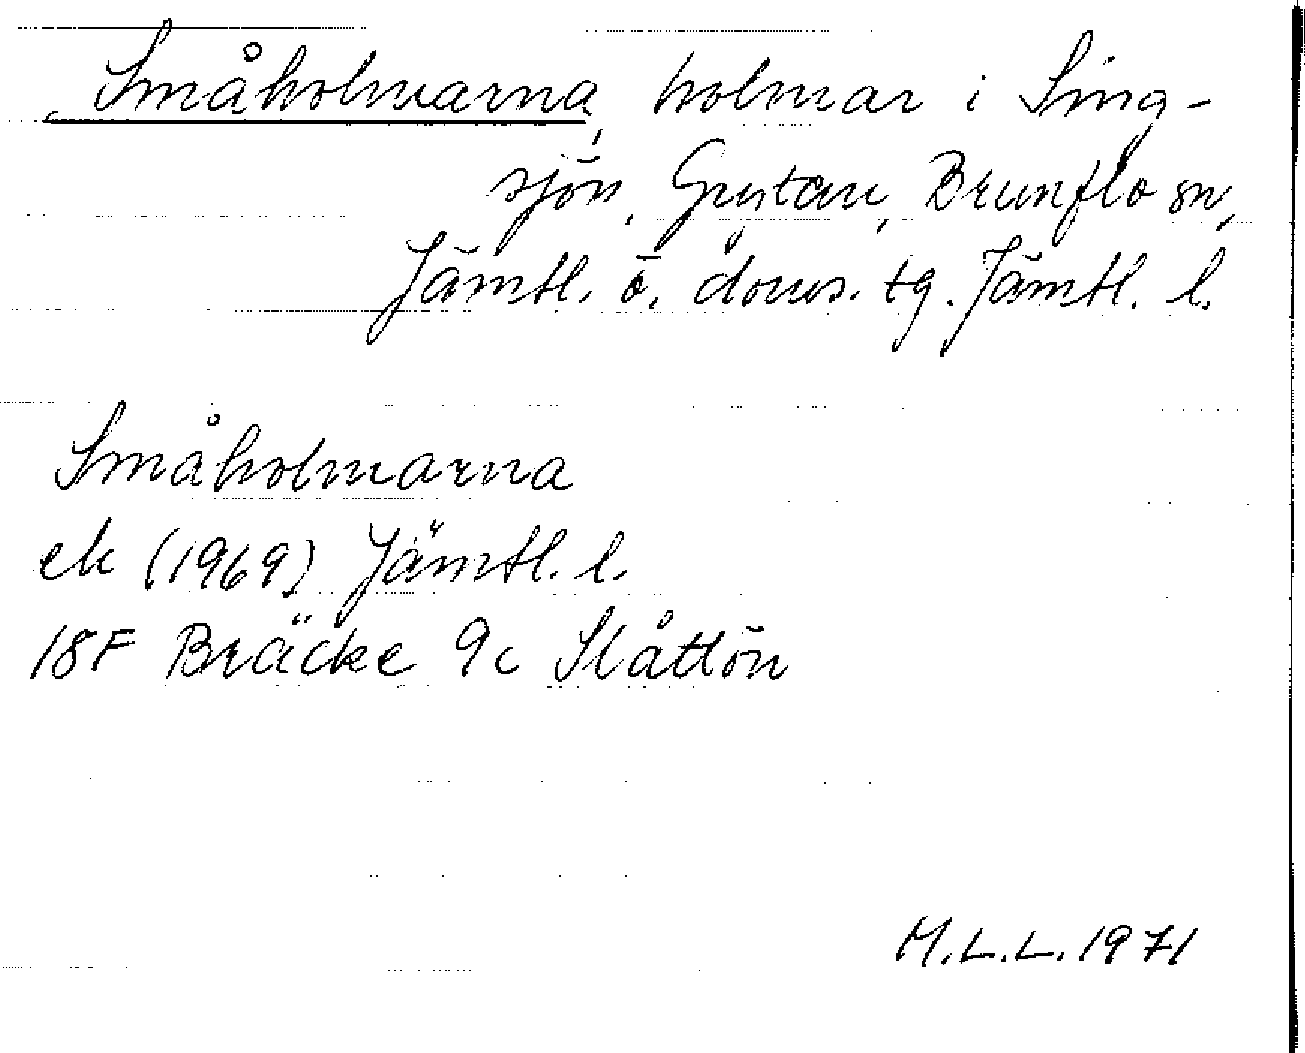 Småholmarna, holmar i Sing-
sjön, Gustav, Brunflo sn,
Jämtl. ö. doms. tg. Jämtl. l.
Småholmarna
ek (1969) Jämtl. l.
18F Bräcke 9c Slåttön
M.L.L. 1971